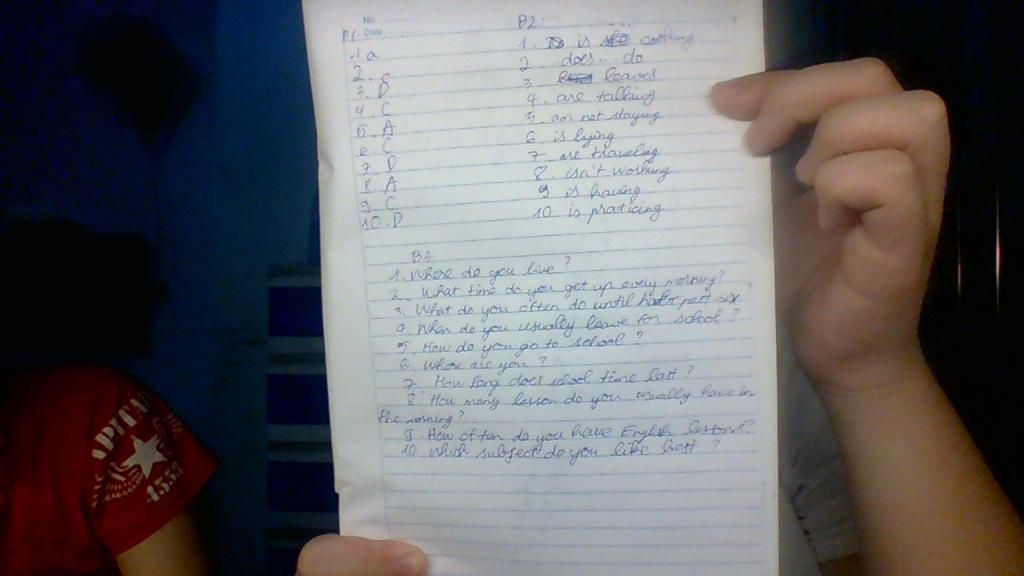 No.
Date
B1.
B2:
1. a
2. c
3. D
4. C
5. A
6. C
7. D
8. A
9. C
10. D
1. is she coming
2. does... do
3. leaves
4. are talking
5. am not staying
6. is lying
7. are traveling
8. isn't working
9. is having
10. is praticing
B3.
1. Where do you live ?
2. What time do you get up every morning?
3. What do you often do until past six ?
4. When do you usually leave for school ?
5. How do you go to school ?
6. Where are you ?
7. How long does school time last ?
8. How many lesson do you usually have in
the morning?
9. How often do you have English lessons?
10. Which subject do you like best ?
4553